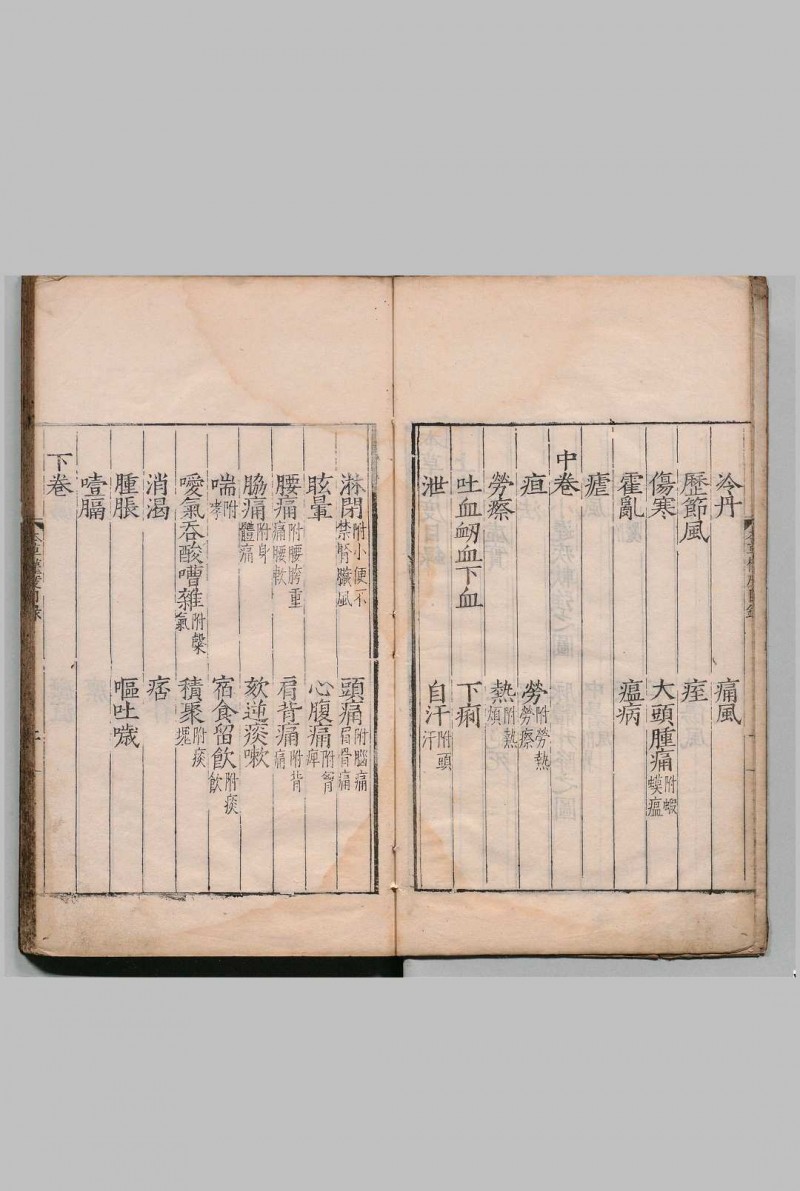 冷丹 痛風
歷節風 痓
傷寒 大頭腫痛附蝦蟆瘟
霍亂 瘟病
瘧
中卷
疸 勞附勞熱勞瘵
勞瘵 熱附熱煩
吐血衂血下血 下痢
泄 自汗附頭汗
淋閉附小便不禁腎臟風 頭痛附腦痛眉骨痛
眩暈 心腹痛附胷痺
腰痛附腰胯重痛腰軟 肩背痛附背痛
脇痛附身體痛 欬逆痰嗽
喘附哮 宿食留飲附痰飲
噯氣吞酸嘈雜附殼氣 積聚附痰
消渴 痞
腫脹 嘔吐噦
噎膈
下卷